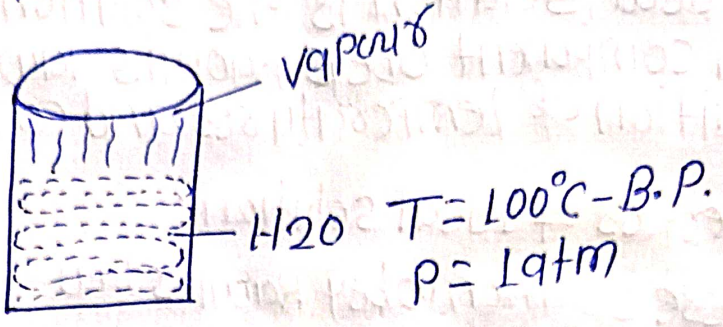 vapour
H2O
T = 100°C - B.P.
P = 1atm